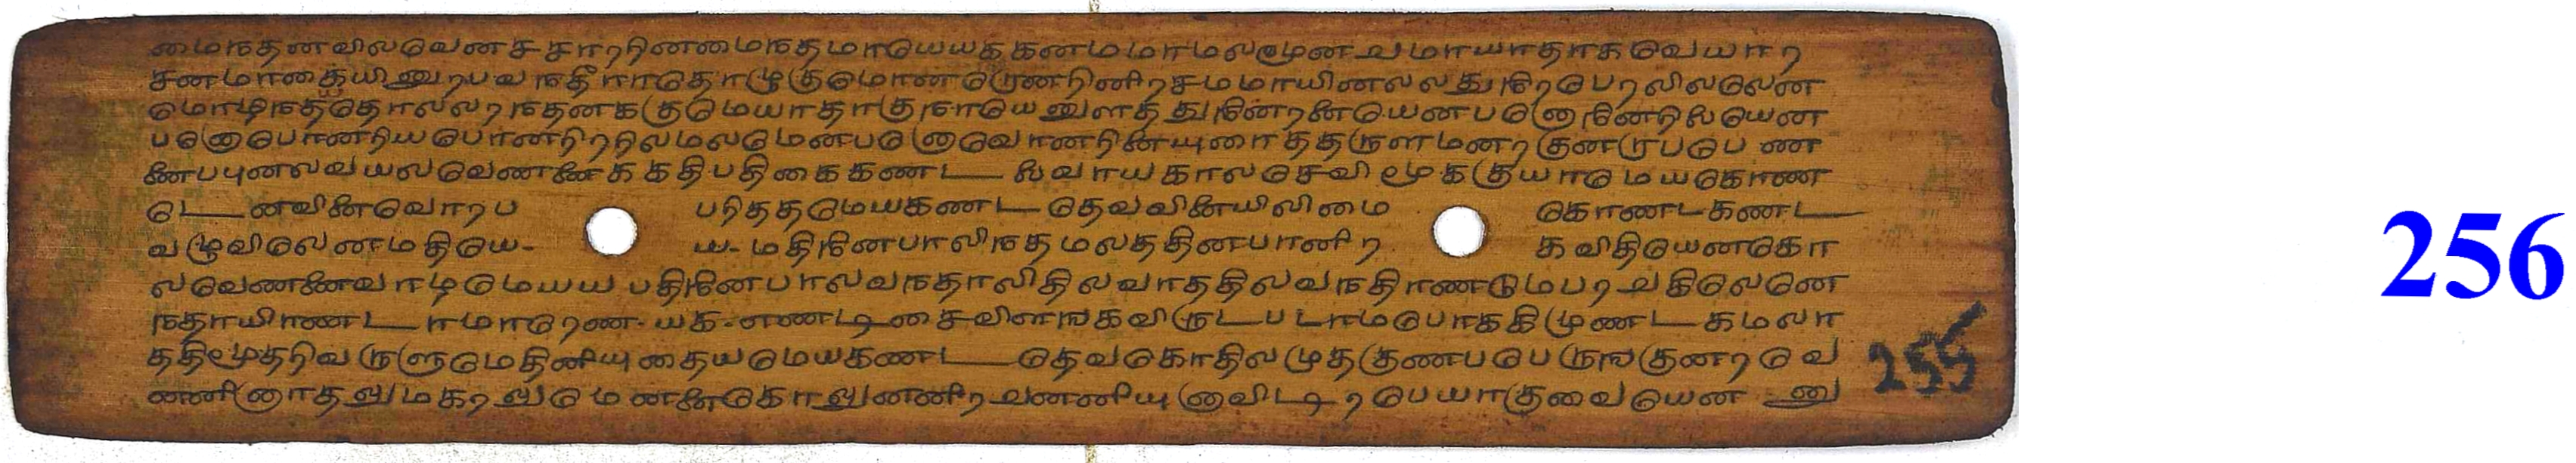 மைநதனவிலவெனச சாரரினமைநதமாயெயக கனமமாமலமூனவமாயாதாகவெயார
சனமாதையினுரபவநதீராதொழுகுமொணருணரினிரசமமாயினலலதுநிரெபரவிலலென
மொழிநததொலலரநதனககுமெயாதாகுநாயெனுளத துநினேரனேயெனபனெநினேநிலெயென
பனெபொணநியபொணநிறநிலமலமெனபனெவாணநினேயுரைததருளமனரகுனருபபெண
ணேபபுனலவயலவெணணேககதிபதிகைகணட லெவாயகாலசெவி மூககுயாமெயகொண
டெனவினேவொரப பரிதததமெயகணடதெவவினேயிலிமை கொணடகணட
வழுவிலெனமதியெ- ய-மதிநினேபாவிநதமலததினபானிர கவிதியெனகொ
லவெணணேவாழமெயய பதிநினேபாலவநதாலிதிலவாததிலவநதிரணடுமபரவகிலெனெ
நதாயிரணடாமாரெண-யக-எணடிசைவிளஙகவிருடபடாமபொககிமுணடகமலா
ததிமூதறிவருளுமெதினியுதையமெயகணடதெவகொதிலமுதகுணபபெருஙகுனரவெ
ணணினொதலுமகரலுமெனனேகொலுனணிரவணணியுனவிடிரபெயாகுவைவெயென னு
255
256